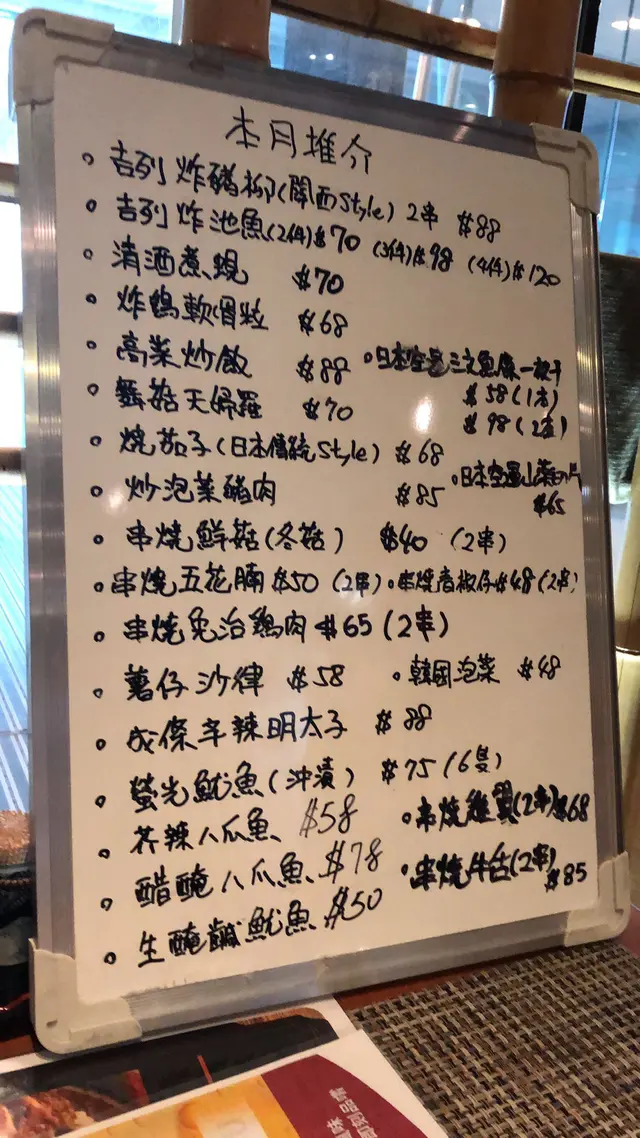 本月推介
。吉列炸豬柳(関西Style) 2串 $88
。吉列炸池魚(2件)$70 (3件)$98 (4件)$120
。清酒煮蜆 $70
。炸鶏軟骨粒 $68
。高菜炒飯 $88
。日本空運三文魚 一夜干
$58(1条)
$98(2条)
。舞菇天婦羅 $70
。燒茄子(日本傳統Style) $68
。日本空運山葵
$65
。炒泡菜豬肉 $85
。串燒鮮菇(冬菇) $40 (2串)
。串燒五花腩 $50 (2串)
。串燒青椒仔 $48(2串)
。串燒免治鶏肉 $65 (2串)
。薯仔沙律 $58
。韓國泡菜 $48
。成條辛辣明太子 $88
。螢光魷魚(沖漬) $75 (6隻)
。芥辣八爪魚 $58
。串燒雞翼(2串)$68
。醋醃八爪魚 $78
。串燒牛舌(2串)
$85
。生醃鹹魷魚 $50